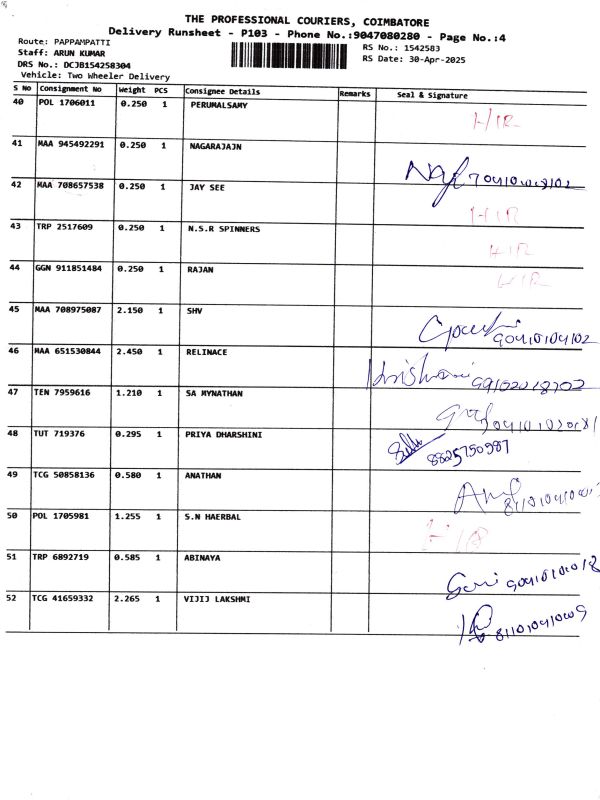 THE PROFESSIONAL COURIERS, COIMBATORE
Delivery Runsheet - P103 - Phone No.:9047080280 - Page No.:4
Route: PAPPAMPATTI
Staff: ARUN KUMAR
DRS No.: DCJB154258304
Vehicle: Two Wheeler Delivery
RS No.: 1542583
RS Date: 30-Apr-2025
S No Consignment No Weight PCS Consignee Details Remarks Seal & Signature
40 POL 1706011 0.250 1 PERUMALSAMY H/R
41 MAA 945492291 0.250 1 NAGARAJAJN
42 MAA 708657538 0.250 1 JAY SEE HIR
43 TRP 2517609 0.250 1 N.S.R SPINNERS HIR
44 GGN 911851484 0.250 1 RAJAN HIR
45 MAA 708975087 2.150 1 SHV
46 MAA 651530844 2.450 1 RELINACE
47 TEN 7959616 1.210 1 SA MYNATHAN
48 TUT 719376 0.295 1 PRIYA DHARSHINI 8825750987
49 TCG 50858136 0.580 1 ANATHAN
50 POL 1705981 1.255 1 S.N HAERBAL HIR
51 TRP 6892719 0.585 1 ABINAYA
52 TCG 41659332 2.265 1 VIJIJ LAKSHMI